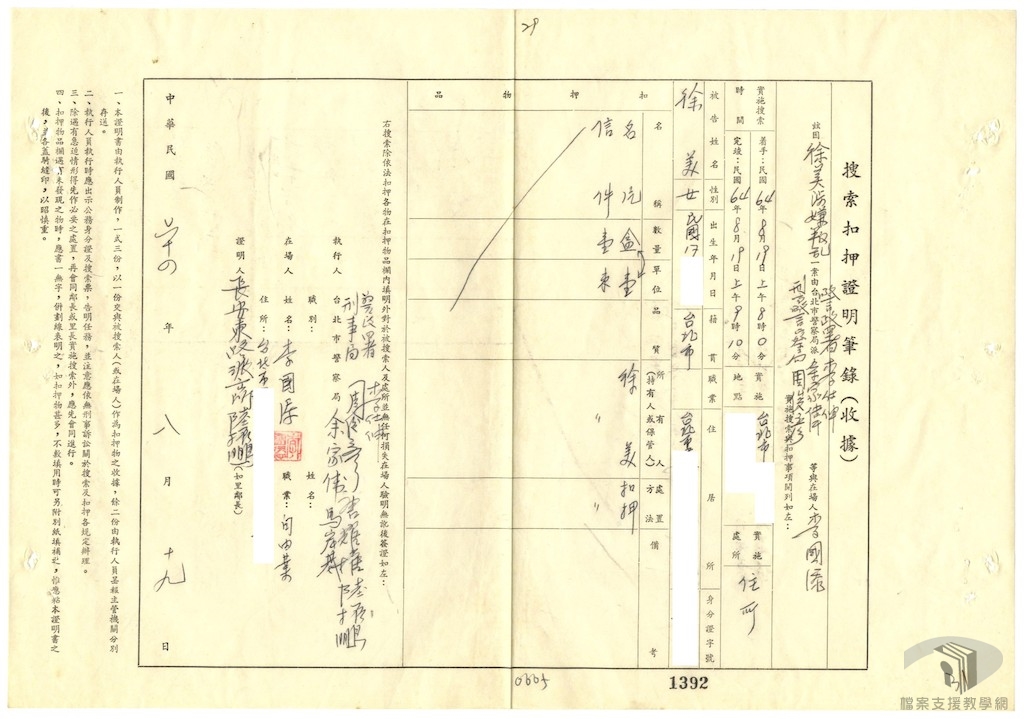 29
搜索扣押證明筆錄(收據)
茲因徐美涉嫌叛亂一案由台北市警察局派余家偉等與在場人李國添
警政署李仕仲
刑警察局周
實施搜索與扣押事項開列如左:
實施搜索時間
着手:民國64年8月19日上午8時0分
完竣:民國64年8月19日上午9時10分
實施地點
台北市
實施處所
住所
被告姓名
性別
出生年月日
籍貫
職業
住居所
身分證字號
徐美
女
民國17
台北市
台北市
扣押物品
名稱
數量
單位
品質
所有人(持有人或保管人)
處置方法
備考
名片
盒
壹
徐美
扣押
信件
壹
束
〃
〃
右搜索除依法扣押各物在扣押物品欄內填明外對於被搜索人及處所並無任何損失在場人驗明無訛後簽證如左:
執行人
警政署
刑事局
台北市警察局
李仕仲
余家偉
在場人
職別:
姓名:
姓名:李國添
職業:自由業
住所:台北市
證明人
長安東路派出所
(如里鄰長)
中華民國六十四年八月十九日
一、本證明書由執行人員制作,一式三份,以一份交與被搜索人(或在場人)作為扣押物之收據,餘二份由執行人員呈報主管機關分別
存送。
二、執行人員執行時應出示公務身分證及搜索票,告明任務,並注意應依照刑事訴訟關於搜索及扣押各規定辦理。
三、除遇有急迫情形得先作必要之處置,再會同鄰長或里長實施搜索外,應先會同進行。
四、扣押物品欄遇有未發現之物時,應書一無字,併劃線表明之,如扣押物甚多,不敷填用時可另附別紙填補之,惟應粘本證明書之
後,並各蓋騎縫印,以昭慎重。
0005
1392
檔案支援教學網